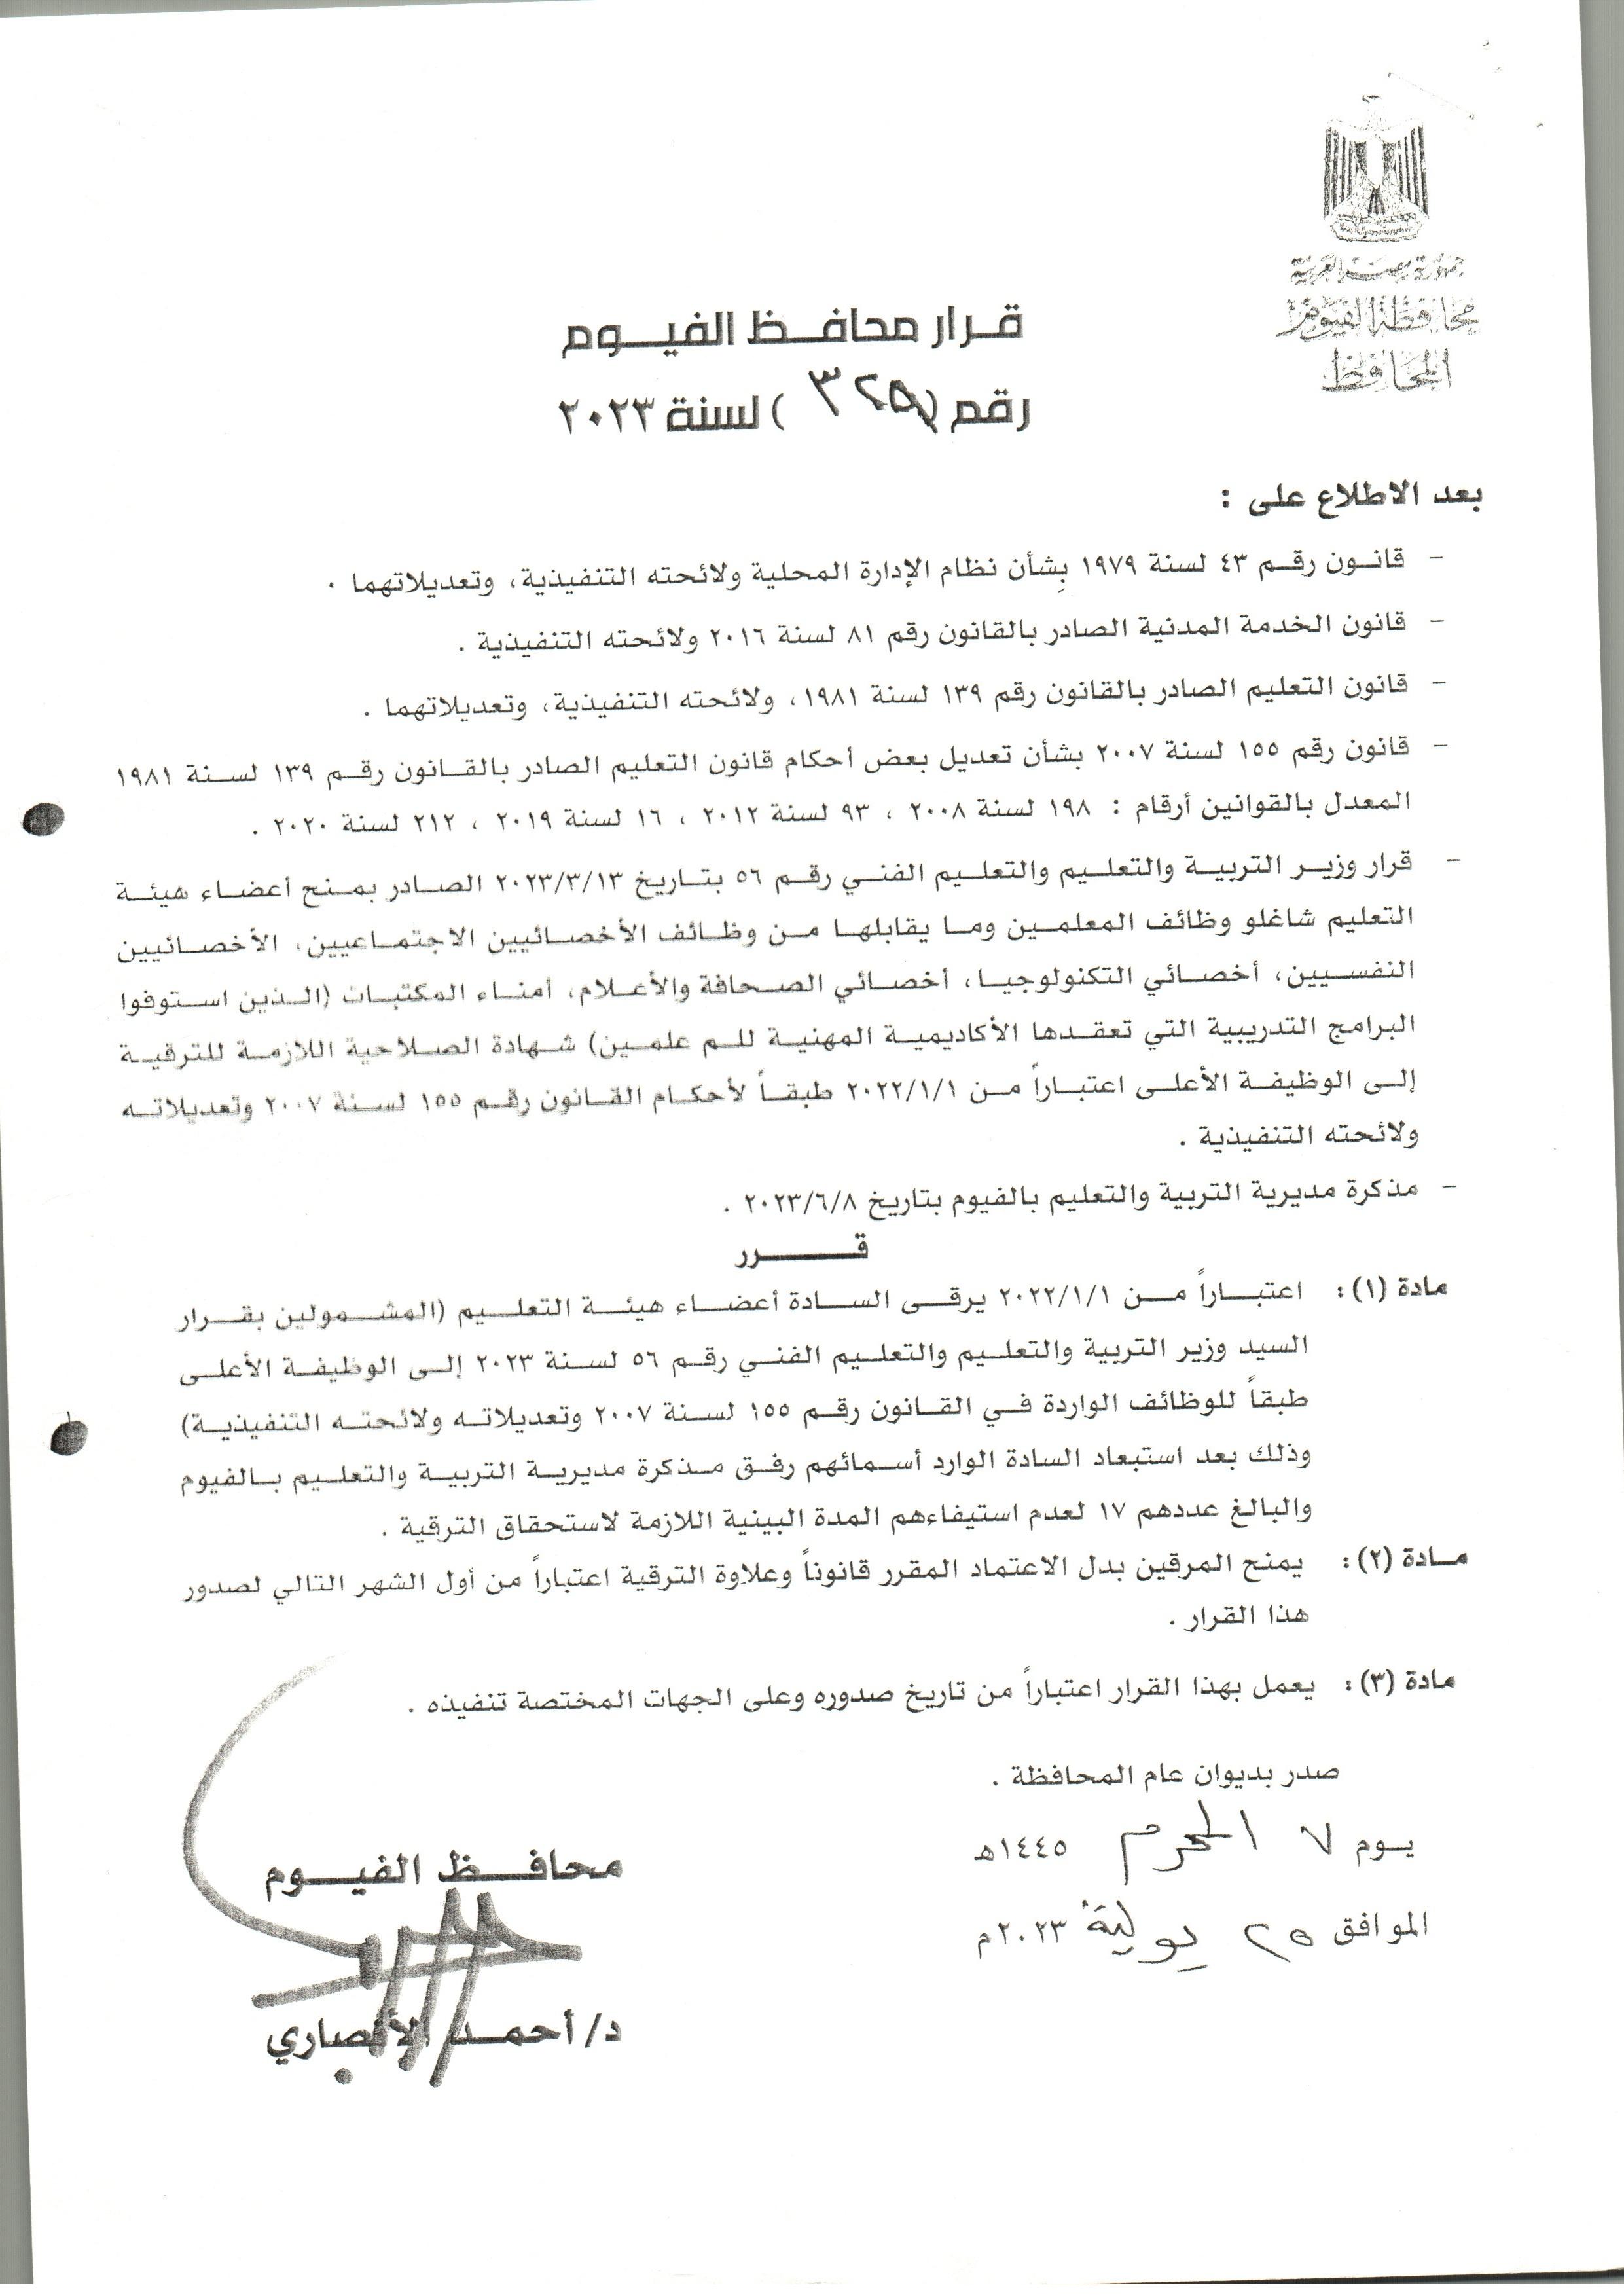 جمهورية مصر العربية
محافظة الفيوم
المحافظ
قـرار محافـــظ الفيـــوم
رقم ( ٣٢٥ ) لسنة ٢٠٢٣
بعد الاطلاع على :
- قانــون رقــم ٤٣ لسنة ١٩٧٩ بِشأن نظام الإدارة المحلية ولائحته التنفيذية، وتعديلاتهما .
- قانون الخدمة المدنية الصادر بالقانون رقم ٨١ لسنة ٢٠١٦ ولائحته التنفيذية .
- قانون التعليم الصادر بالقانون رقم ١٣٩ لسنة ١٩٨١، ولائحته التنفيذية، وتعديلاتهما .
- قانون رقم ١٥٥ لسنة ٢٠٠٧ بشأن تعديل بعض أحكام قانون التعليم الصادر بالقــانون رقــم ١٣٩ لســنة ١٩٨١
المعدل بالقوانين أرقام : ١٩٨ لسنة ٢٠٠٨ ، ٩٣ لسنة ٢٠١٢ ، ١٦ لسنة ٢٠١٩ ، ٢١٢ لسنة ٢٠٢٠ .
- قرار وزيــر التربيــة والتعلــيم والتعلــيم الفنــي رقــم ٥٦ بتــاريخ ٢٠٢٣/٣/١٣ الصــادر بمــنح أعضــاء هيئــة
التعليم شاغلو وظائف المعلمــين ومــا يقابلهــا مــن وظــائف الأخصــائيين الاجتمــاعيين، الأخصــائيين
النفســيين، أخصــائي التكنولوجيــا، أخصــائي الصــحافة والأعــلام، أمنــاء المكتبــات (الــذين اســتوفوا
البرامج التدريبية التي تعقــدها الأكاديميــة المهنيــة للــم علمــين) شــهادة الصــلاحية اللازمــة للترقيــة
إلــى الوظيفــة الأعلــى اعتبــاراً مــن ٢٠٢٢/١/١ طبقــاً لأحكــام القــانون رقــم ١٥٥ لســنة ٢٠٠٧ وتعديلاتــه
ولائحته التنفيذية .
- مذكرة مديرية التربية والتعليم بالفيوم بتاريخ ٢٠٢٣/٦/٨ .
قــــــرر
مادة (١): اعتبــاراً مــن ٢٠٢٢/١/١ يرقــى الســادة أعضــاء هيئــة التعلــيم (المشــمولين بقــرار
السيد وزير التربية والتعلــيم والتعلــيم الفنــي رقــم ٥٦ لســنة ٢٠٢٣ إلــى الوظيفــة الأعلــى
طبقاً للوظائف الواردة فــي القــانون رقــم ١٥٥ لســنة ٢٠٠٧ وتعديلاتــه ولائحتــه التنفيذيــة)
وذلك بعد استبعاد السادة الوارد أســمائهم رفــق مــذكرة مديريــة التربيــة والتعلــيم بــالفيوم
والبالغ عددهم ١٧ لعدم استيفاءهم المدة البينية اللازمة لاستحقاق الترقية .
مــادة (٢): يمنح المرقين بدل الاعتماد المقرر قانوناً وعلاوة الترقية اعتباراً من أول الشهر التالي لصدور
هذا القرار .
مادة (٣): يعمل بهذا القرار اعتباراً من تاريخ صدوره وعلى الجهات المختصة تنفيذه .
صدر بديوان عام المحافظة .
يــوم ٧ المحرم ١٤٤٥هـ
الموافق ٢٥ يولية ٢٠٢٣م
محافـــظ الفيـــوم
د/ أحمــد الأنصاري